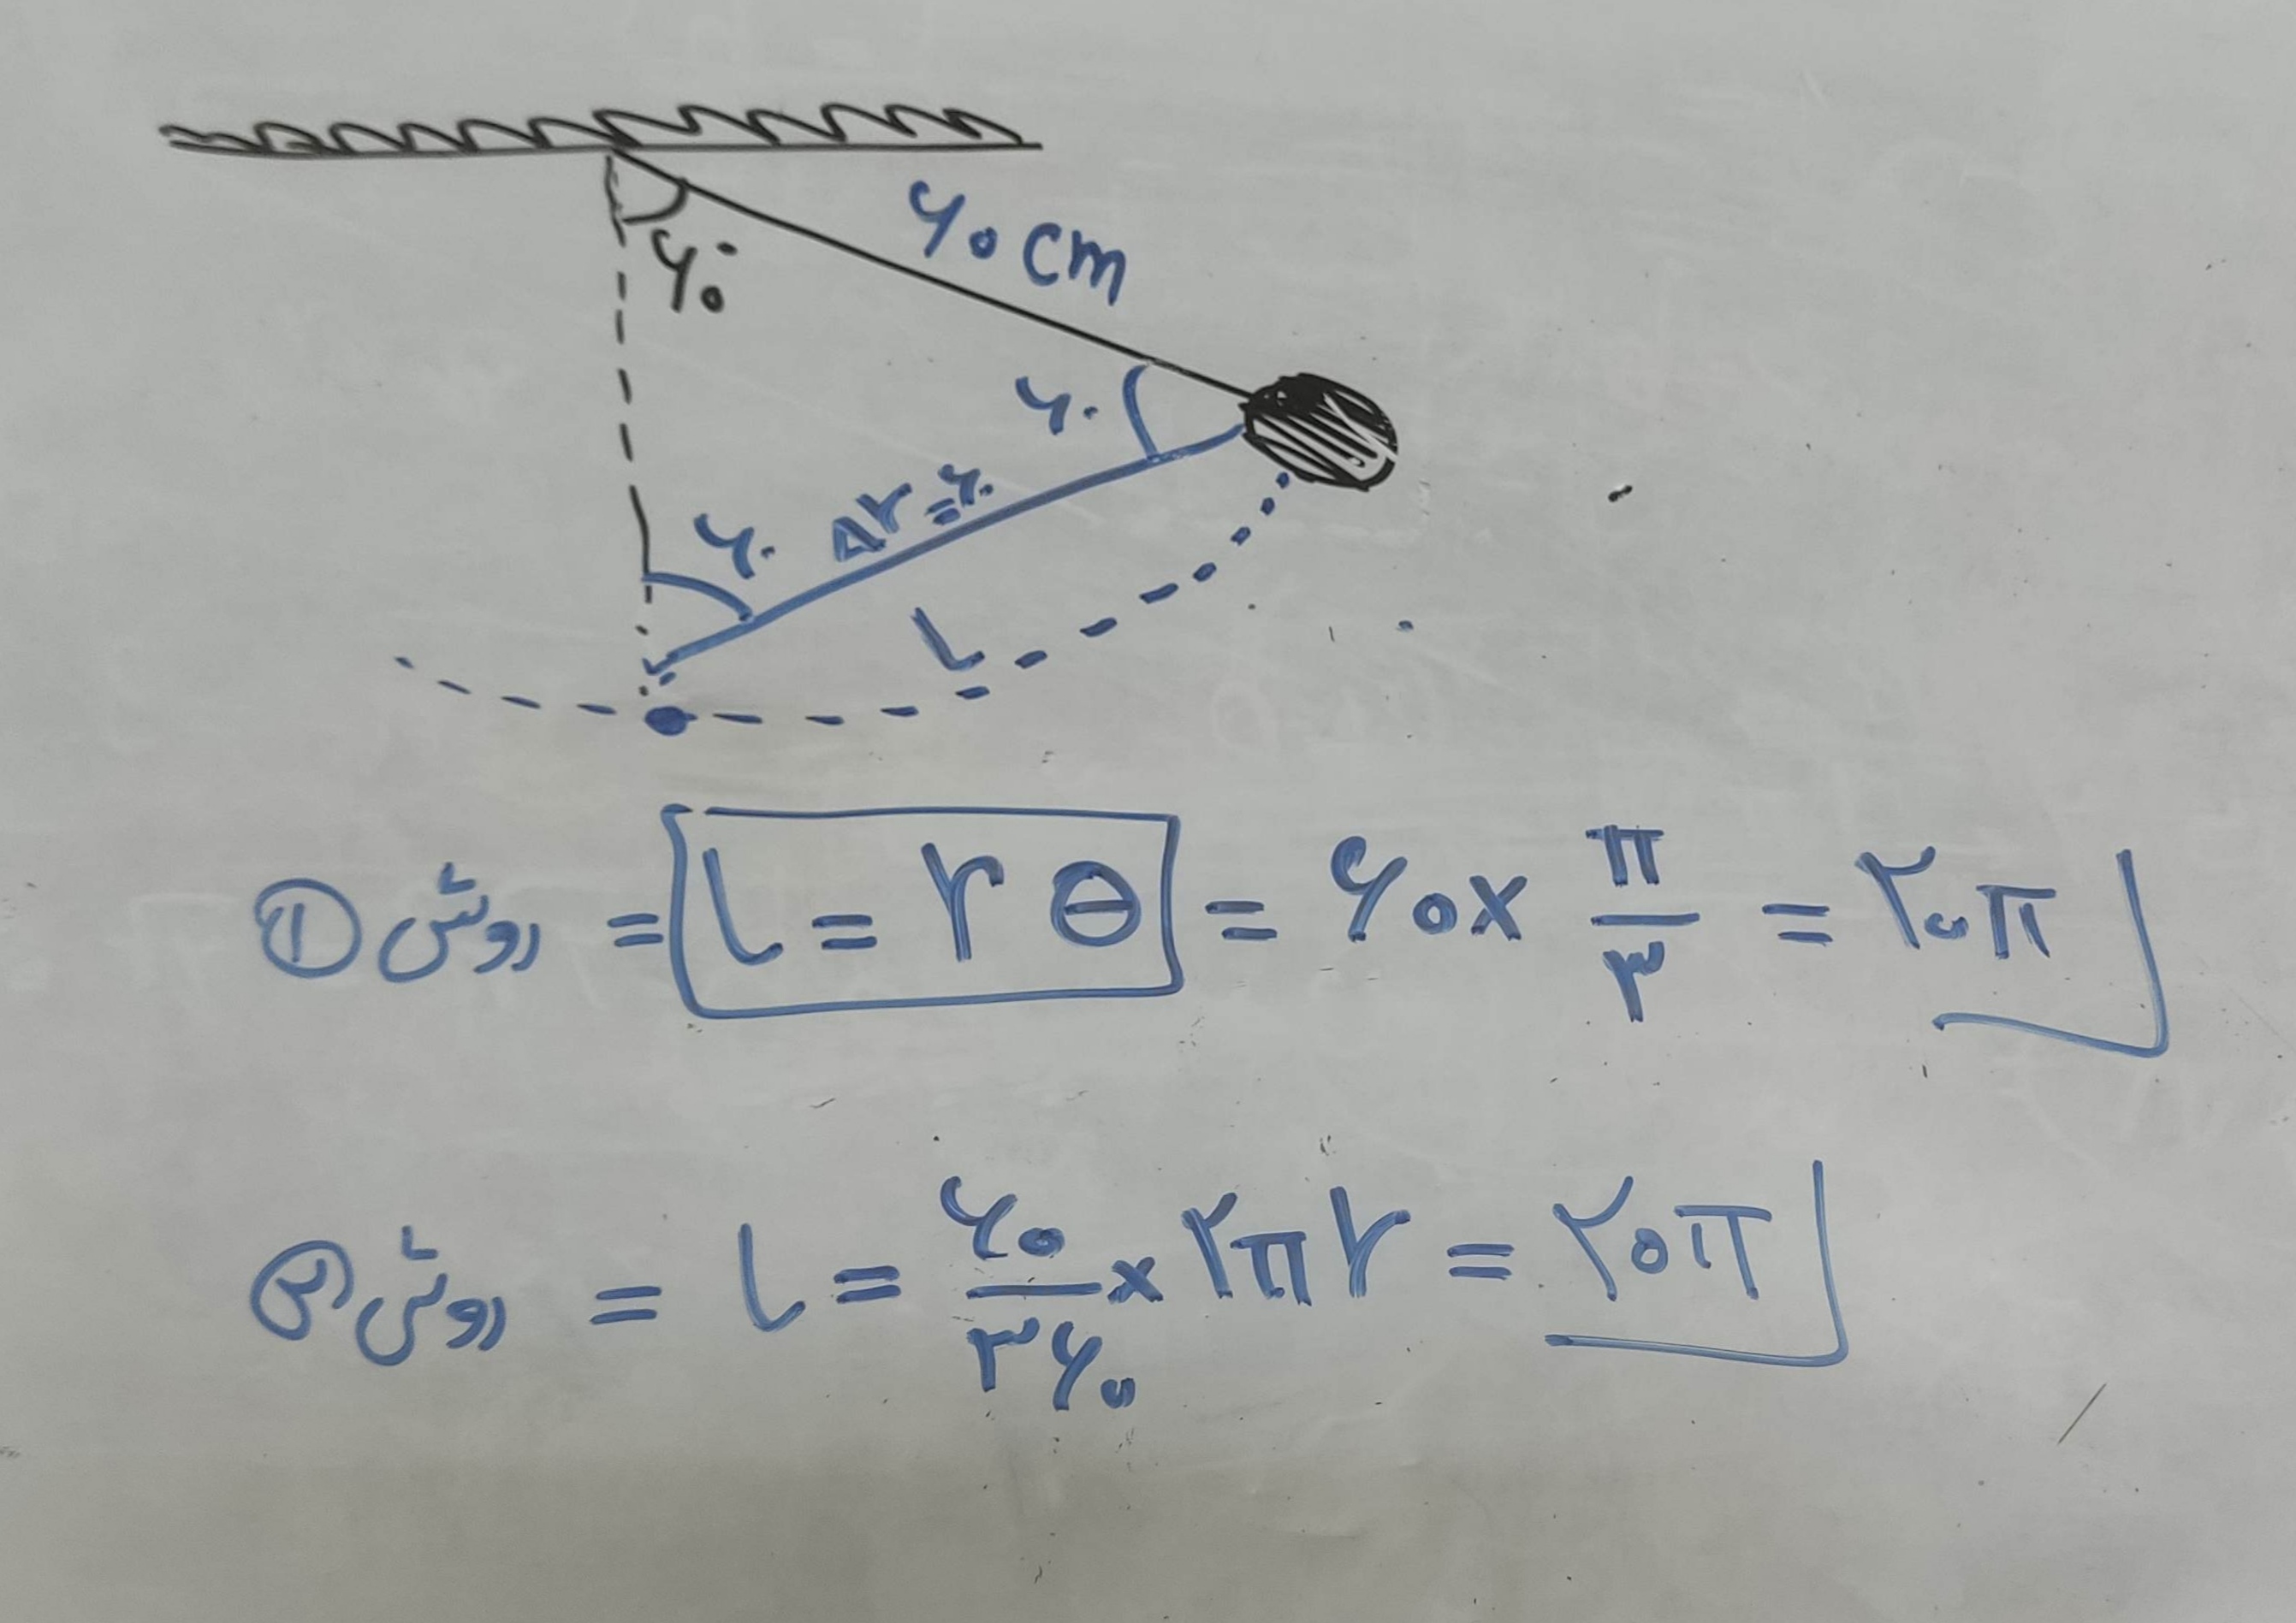 ۶۰ cm
۶۰°
۶۰
۶۰ Δr=۶۰
L
روش ① = L = rθ = ۶۰ × π/۳ = ۲۰π
روش ② = L = ۶۰/۳۶۰ × ۲πr = ۲۰π